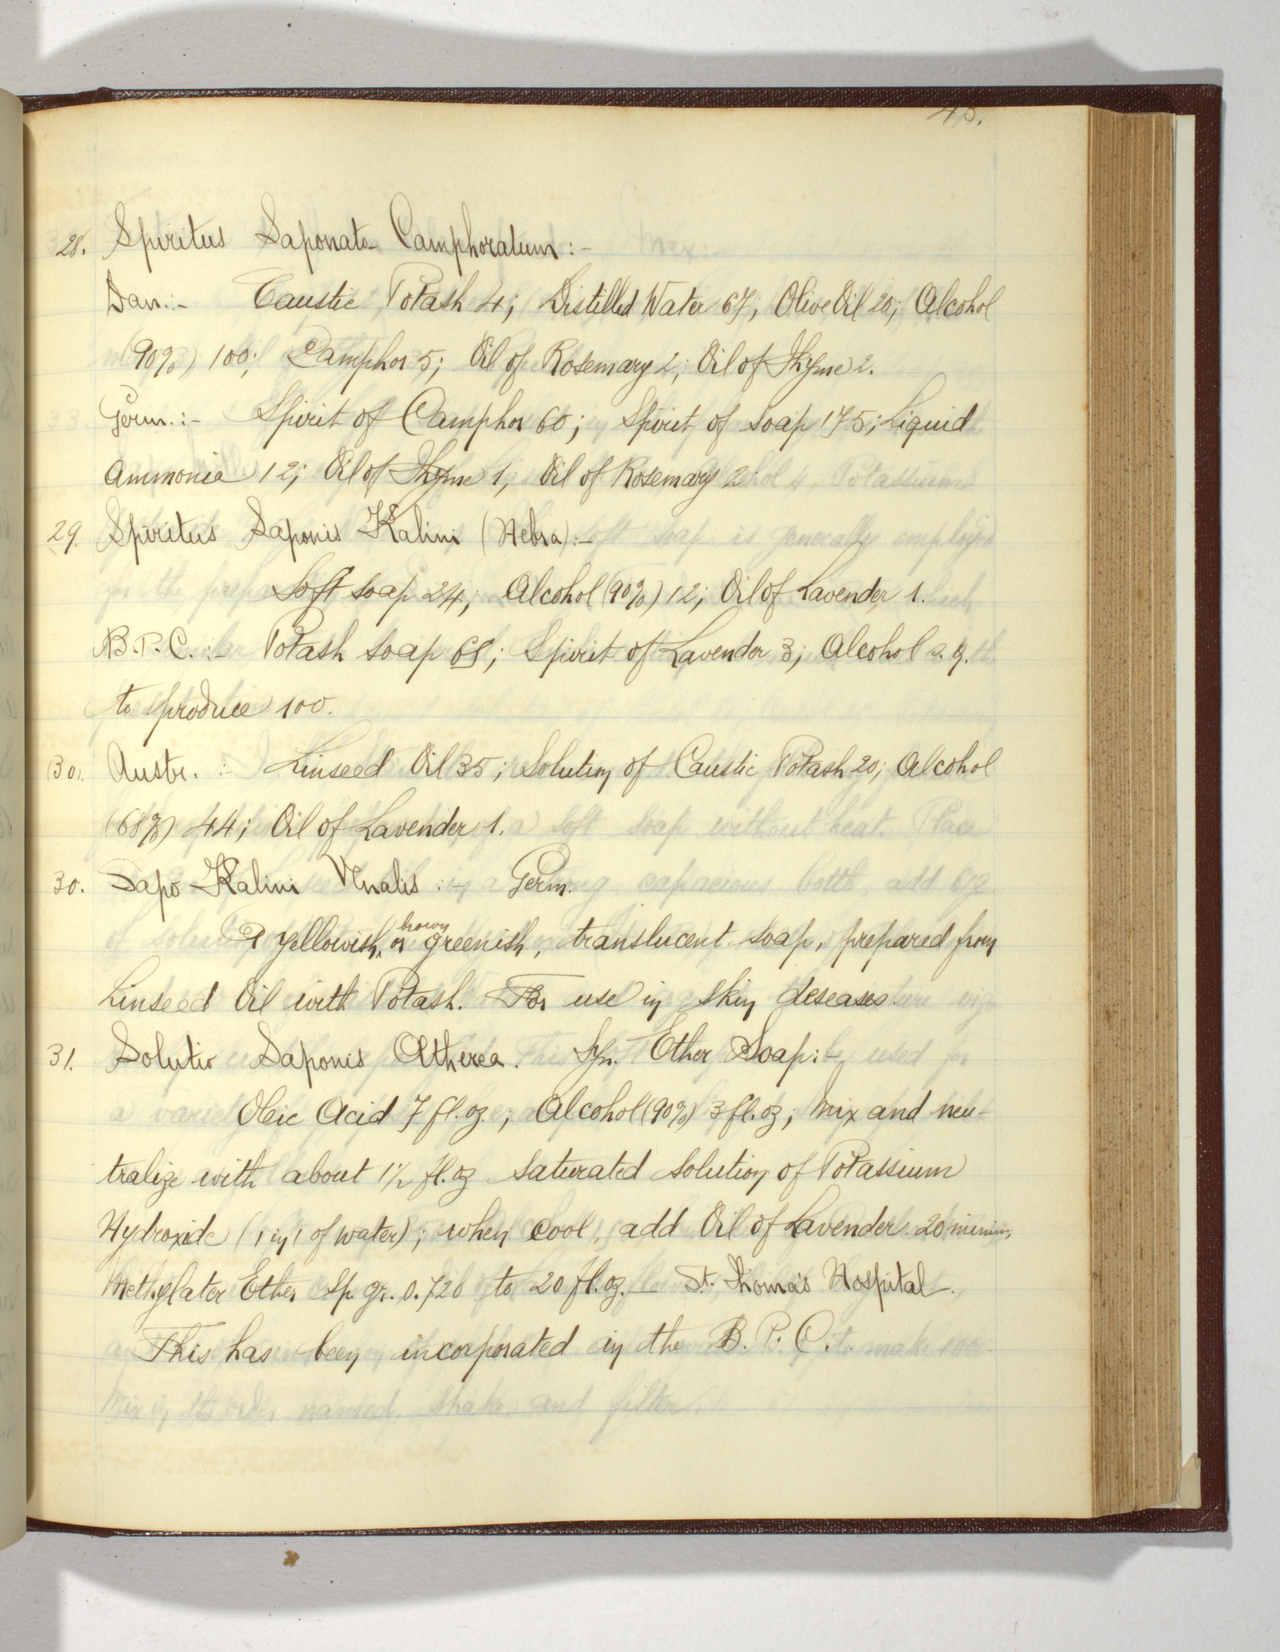 28. Spiritus Saponato-Camphoratum:-
Dan.:- Caustic Potash 4; Distilled Water 67; Olive Oil 20; Alcohol
(90%) 100; Camphor 5; Oil of Rosemary 2; Oil of Thyme 2.
Germ.:- Spirit of Camphor 60; Spirit of Soap 175; Liquid
Ammonia 12; Oil of Thyme 1; Oil of Rosemary 2.
29. Spiritus Saponis Kalini (Hebra):-
Soft soap 24; Alcohol (90%) 12; Oil of Lavender 1.
B.P.C.:- Potash soap 65; Spirit of Lavender 3; Alcohol q.s.
to produce 100.
(30). Austr.:- Linseed Oil 35; Solution of Caustic Potash 20; Alcohol
(68%) 44; Oil of Lavender 1.
30. Sapo Kalini Venalis:- Germ.
A yellowish, brown or greenish, translucent soap, prepared from
Linseed Oil with Potash. For use in skin deseases.
31. Solutio Saponis Ætherea. Syn. Ether Soap:-
Oleic Acid 7 fl.oz.; Alcohol (90%) 3 fl.oz; Mix and neu-
tralize with about 1½ fl.oz saturated solution of Potassium
Hydroxide (1 in 1 of water); when cool, add Oil of Lavender 20 minims,
Methylater Ether Sp. gr. 0.720 to 20 fl.oz. — St. Thomas's Hospital.
This has been incorporated in the B.P.C.